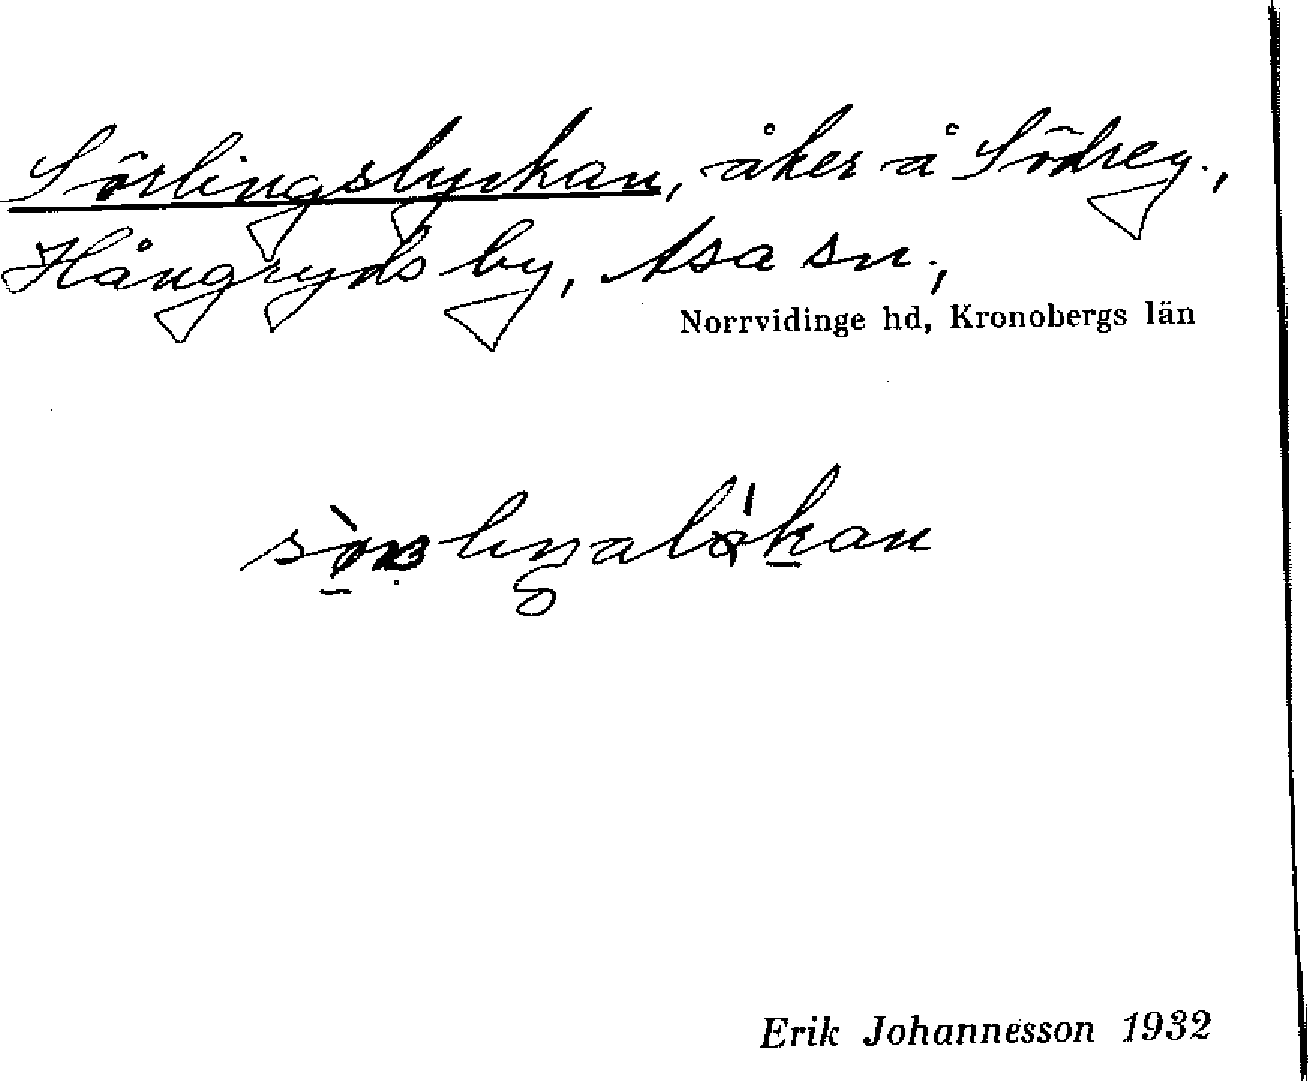 Sörlingslyckan, åker å Södreg.,
Hångryds by, Asa sn.,
Norrvidinge hd, Kronobergs län
Erik Johannesson 1932